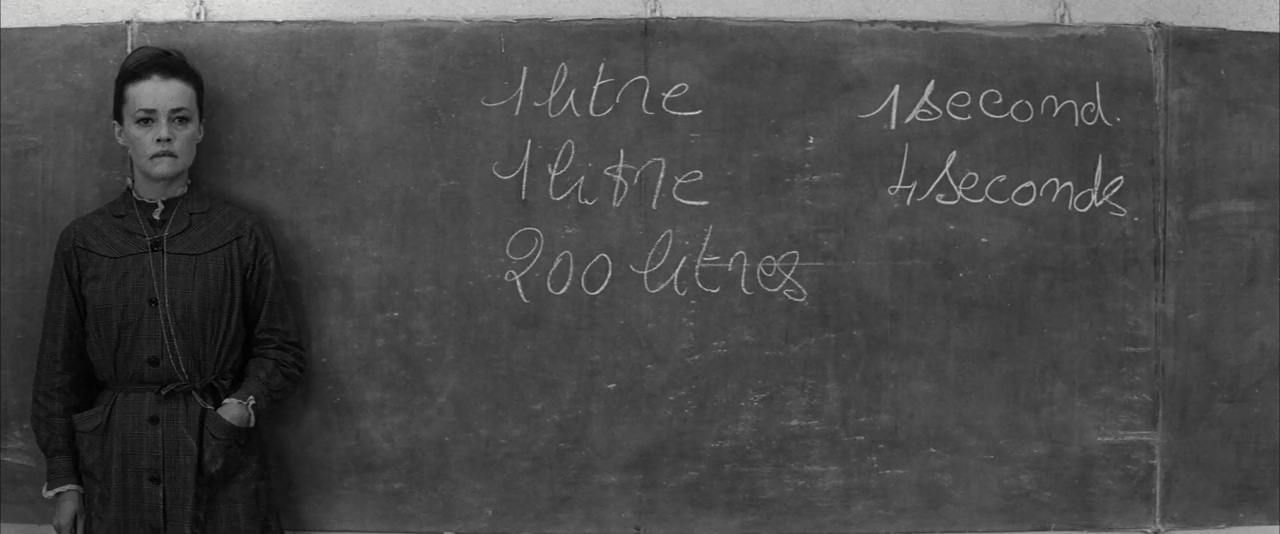 1 litre 1 second.
1 litre 4 seconds.
200 litres